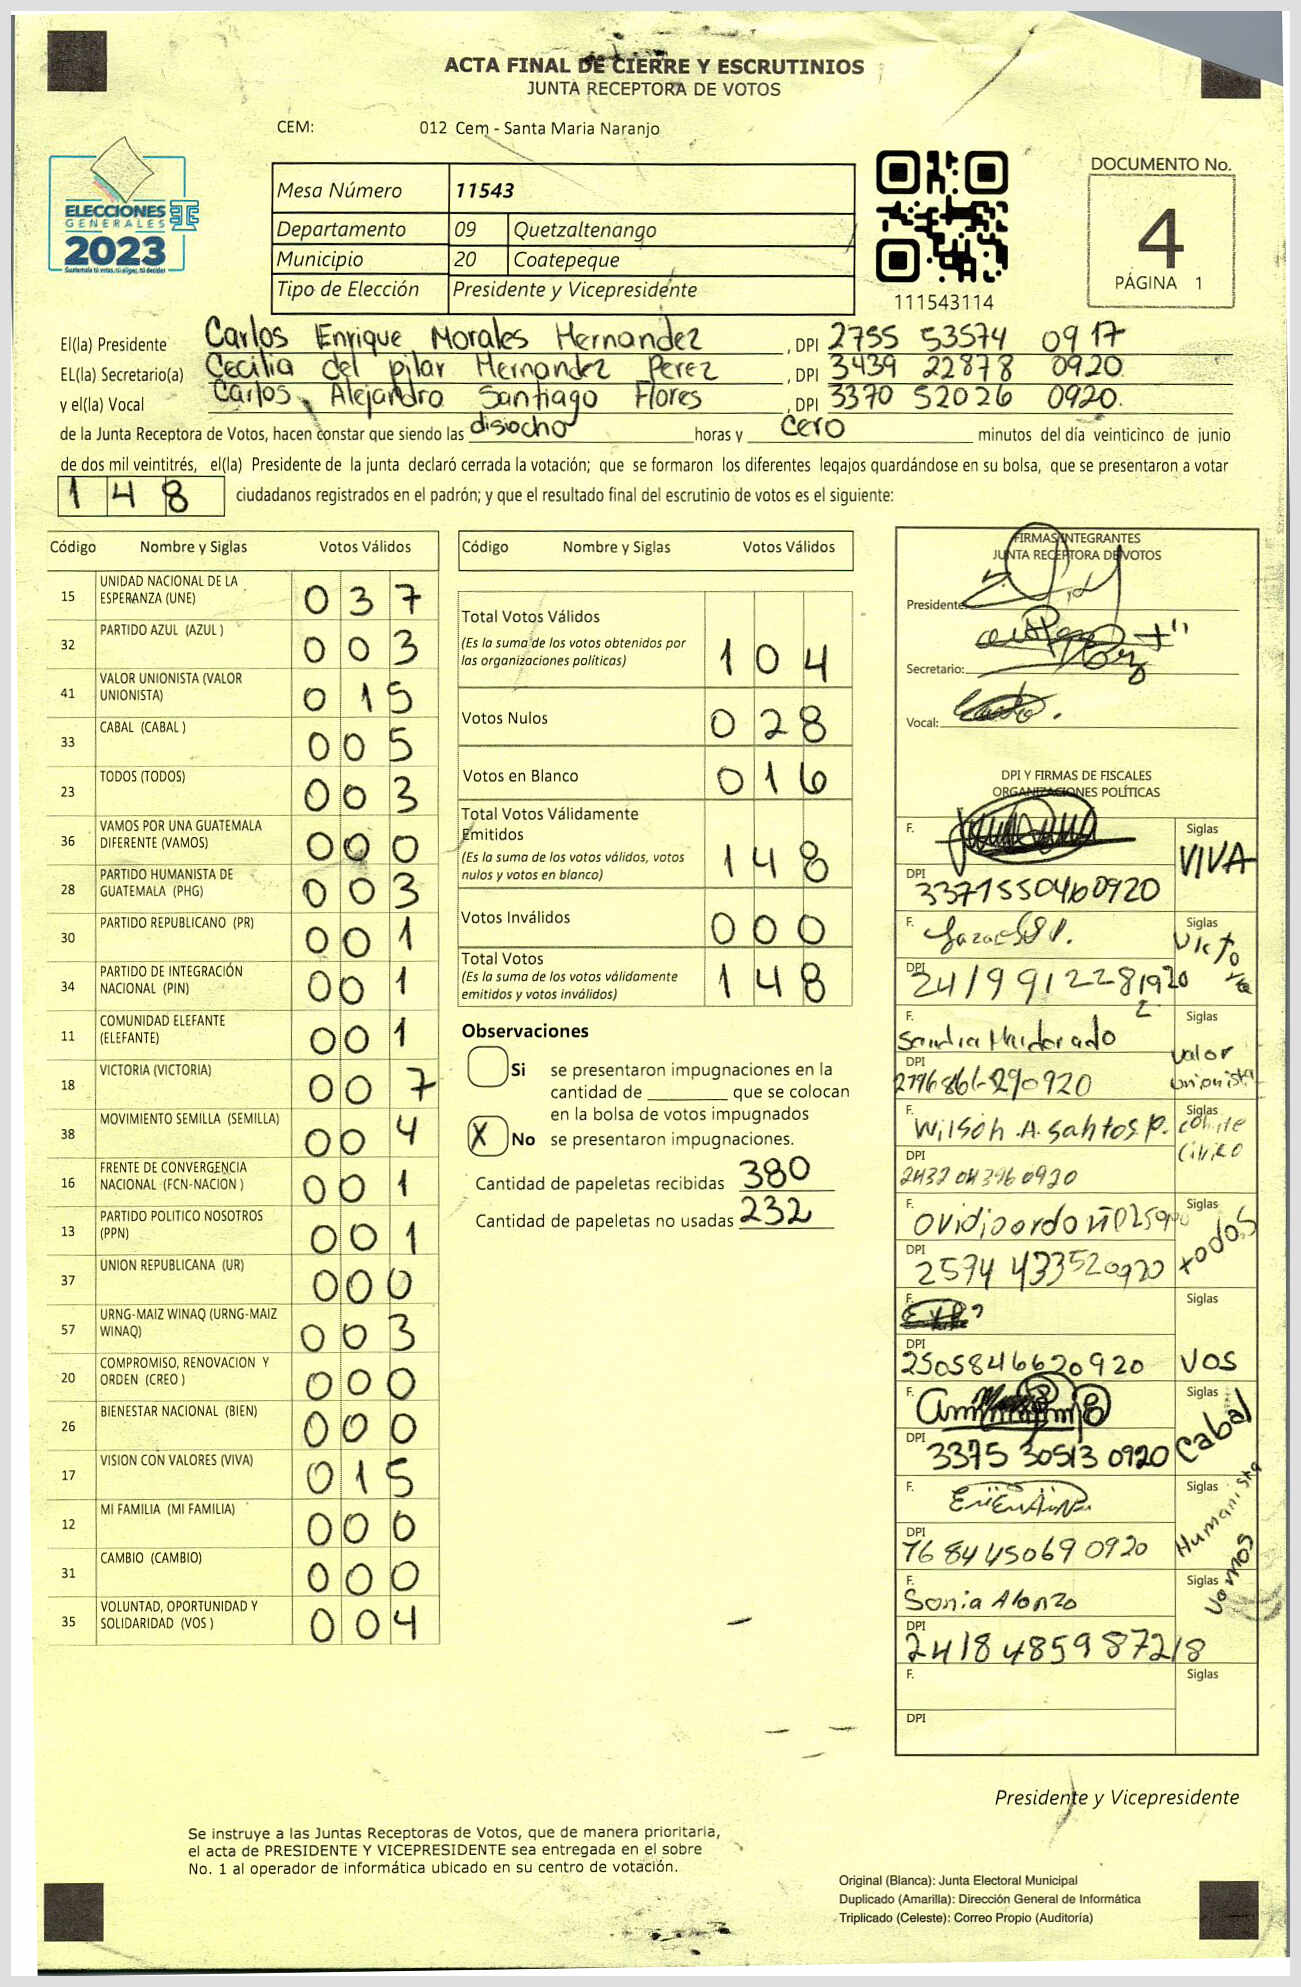 ACTA FINAL DE CIERRE Y ESCRUTINIOS
JUNTA RECEPTORA DE VOTOS
CEM: 012 Cem - Santa Maria Naranjo
ELECCIONES
GENERALES
2023
Guatemala tú votas, tú eliges, tú decides
Mesa Número 11543
Departamento 09 Quetzaltenango
Municipio 20 Coatepeque
Tipo de Elección Presidente y Vicepresidente
111543114
DOCUMENTO No.
4
PÁGINA 1
El(la) Presidente Carlos Enrique Morales Hernandez, DPI 2755 53574 0917
EL(la) Secretario(a) Cecilia del pilar Hernandez Perez, DPI 3439 22878 0920
y el(la) Vocal Carlos Alejandro Santiago Flores, DPI 3370 52026 0920.
de la Junta Receptora de Votos, hacen constar que siendo las disiocho horas y cero minutos del día veinticinco de junio
de dos mil veintitrés, el(la) Presidente de la junta declaró cerrada la votación; que se formaron los diferentes legajos guardándose en su bolsa, que se presentaron a votar
148 ciudadanos registrados en el padrón; y que el resultado final del escrutinio de votos es el siguiente:
Código Nombre y Siglas Votos Válidos
15 UNIDAD NACIONAL DE LA ESPERANZA (UNE) 037
32 PARTIDO AZUL (AZUL ) 003
41 VALOR UNIONISTA (VALOR UNIONISTA) 015
33 CABAL (CABAL ) 005
23 TODOS (TODOS) 003
36 VAMOS POR UNA GUATEMALA DIFERENTE (VAMOS) 000
28 PARTIDO HUMANISTA DE GUATEMALA (PHG) 003
30 PARTIDO REPUBLICANO (PR) 001
34 PARTIDO DE INTEGRACIÓN NACIONAL (PIN) 001
11 COMUNIDAD ELEFANTE (ELEFANTE) 001
18 VICTORIA (VICTORIA) 007
38 MOVIMIENTO SEMILLA (SEMILLA) 004
16 FRENTE DE CONVERGENCIA NACIONAL (FCN-NACION ) 001
13 PARTIDO POLITICO NOSOTROS (PPN) 001
37 UNION REPUBLICANA (UR) 000
57 URNG-MAIZ WINAQ (URNG-MAIZ WINAQ) 003
20 COMPROMISO, RENOVACION Y ORDEN (CREO ) 000
26 BIENESTAR NACIONAL (BIEN) 000
17 VISION CON VALORES (VIVA) 015
12 MI FAMILIA (MI FAMILIA) 000
31 CAMBIO (CAMBIO) 000
35 VOLUNTAD, OPORTUNIDAD Y SOLIDARIDAD (VOS ) 004
Código Nombre y Siglas Votos Válidos
Total Votos Válidos
(Es la suma de los votos obtenidos por
las organizaciones políticas) 104
Votos Nulos 028
Votos en Blanco 016
Total Votos Válidamente
Emitidos
(Es la suma de los votos válidos, votos
nulos y votos en blanco) 148
Votos Inválidos 000
Total Votos
(Es la suma de los votos válidamente
emitidos y votos inválidos) 148
Observaciones
Si se presentaron impugnaciones en la
cantidad de ________ que se colocan
en la bolsa de votos impugnados
X No se presentaron impugnaciones.
Cantidad de papeletas recibidas 380
Cantidad de papeletas no usadas 232
FIRMAS INTEGRANTES
JUNTA RECEPTORA DE VOTOS
Presidente:
Secretario:
Vocal:
DPI Y FIRMAS DE FISCALES
ORGANIZACIONES POLÍTICAS
F. Siglas VIVA
DPI 3371550460920
F. Siglas Victoria
DPI
F. Sandra Maldorado Siglas valor unionista
DPI
F. Wilson .A. santos.P. Siglas comite civico
DPI 2432 04396 0920
F. Siglas todos
DPI 2574 433520920
F. Siglas VOS
DPI 2505846620920
F. Siglas Cabal
DPI 3375 30513 0920
F. Siglas Humanista
DPI 7684450690920
F. Sonia Alonzo Siglas vamos
DPI 2418485987218
F. Siglas
DPI
Presidente y Vicepresidente
Se instruye a las Juntas Receptoras de Votos, que de manera prioritaria,
el acta de PRESIDENTE Y VICEPRESIDENTE sea entregada en el sobre
No. 1 al operador de informática ubicado en su centro de votación.
Original (Blanca): Junta Electoral Municipal
Duplicado (Amarilla): Dirección General de Informática
Triplicado (Celeste): Correo Propio (Auditoría)